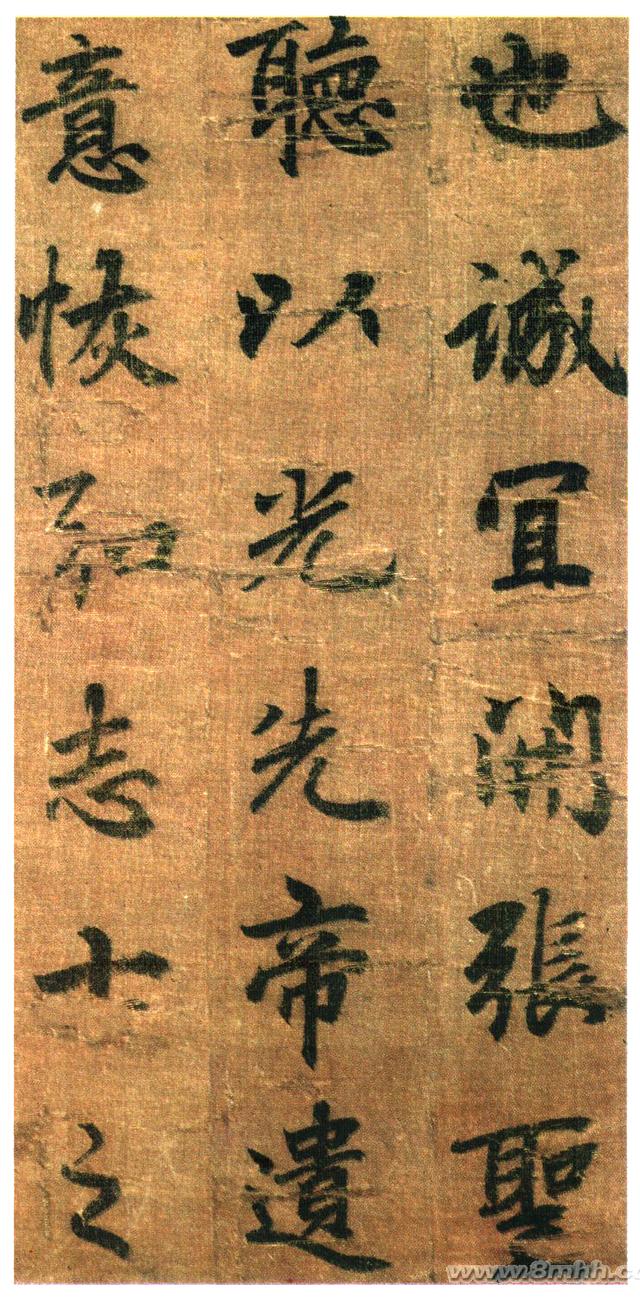 也誠宜開張聖
聽以光先帝遺
意恢弘志士之
www.8mhh.c